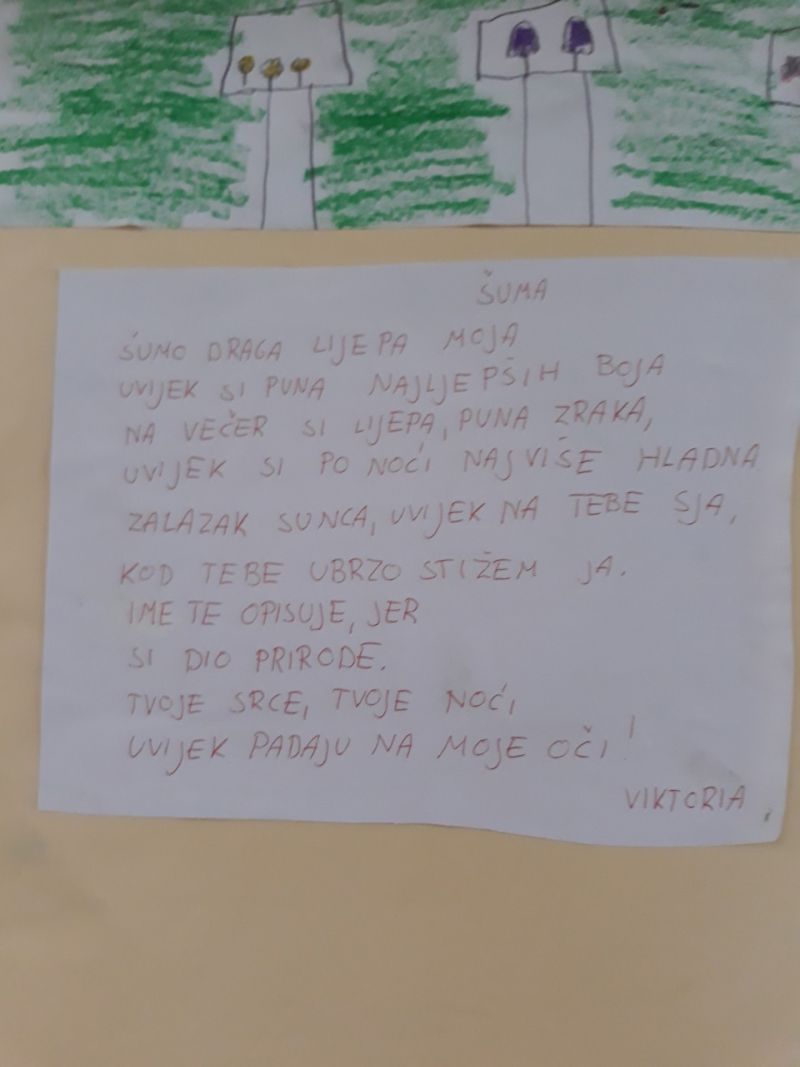 ŠUMA
ŠUMO DRAGA LIJEPA MOJA
UVIJEK SI PUNA NAJLJEPŠIH BOJA
NA VEČER SI LIJEPA, PUNA ZRAKA,
UVIJEK SI PO NOĆI NAJVIŠE HLADNA
ZALAZAK SUNCA, UVIJEK NA TEBE SJA,
KOD TEBE UBRZO STIŽEM JA.
IME TE OPISUJE, JER
SI DIO PRIRODE.
TVOJE SRCE, TVOJE NOĆI
UVIJEK PADAJU NA MOJE OČI!
VIKTORIA